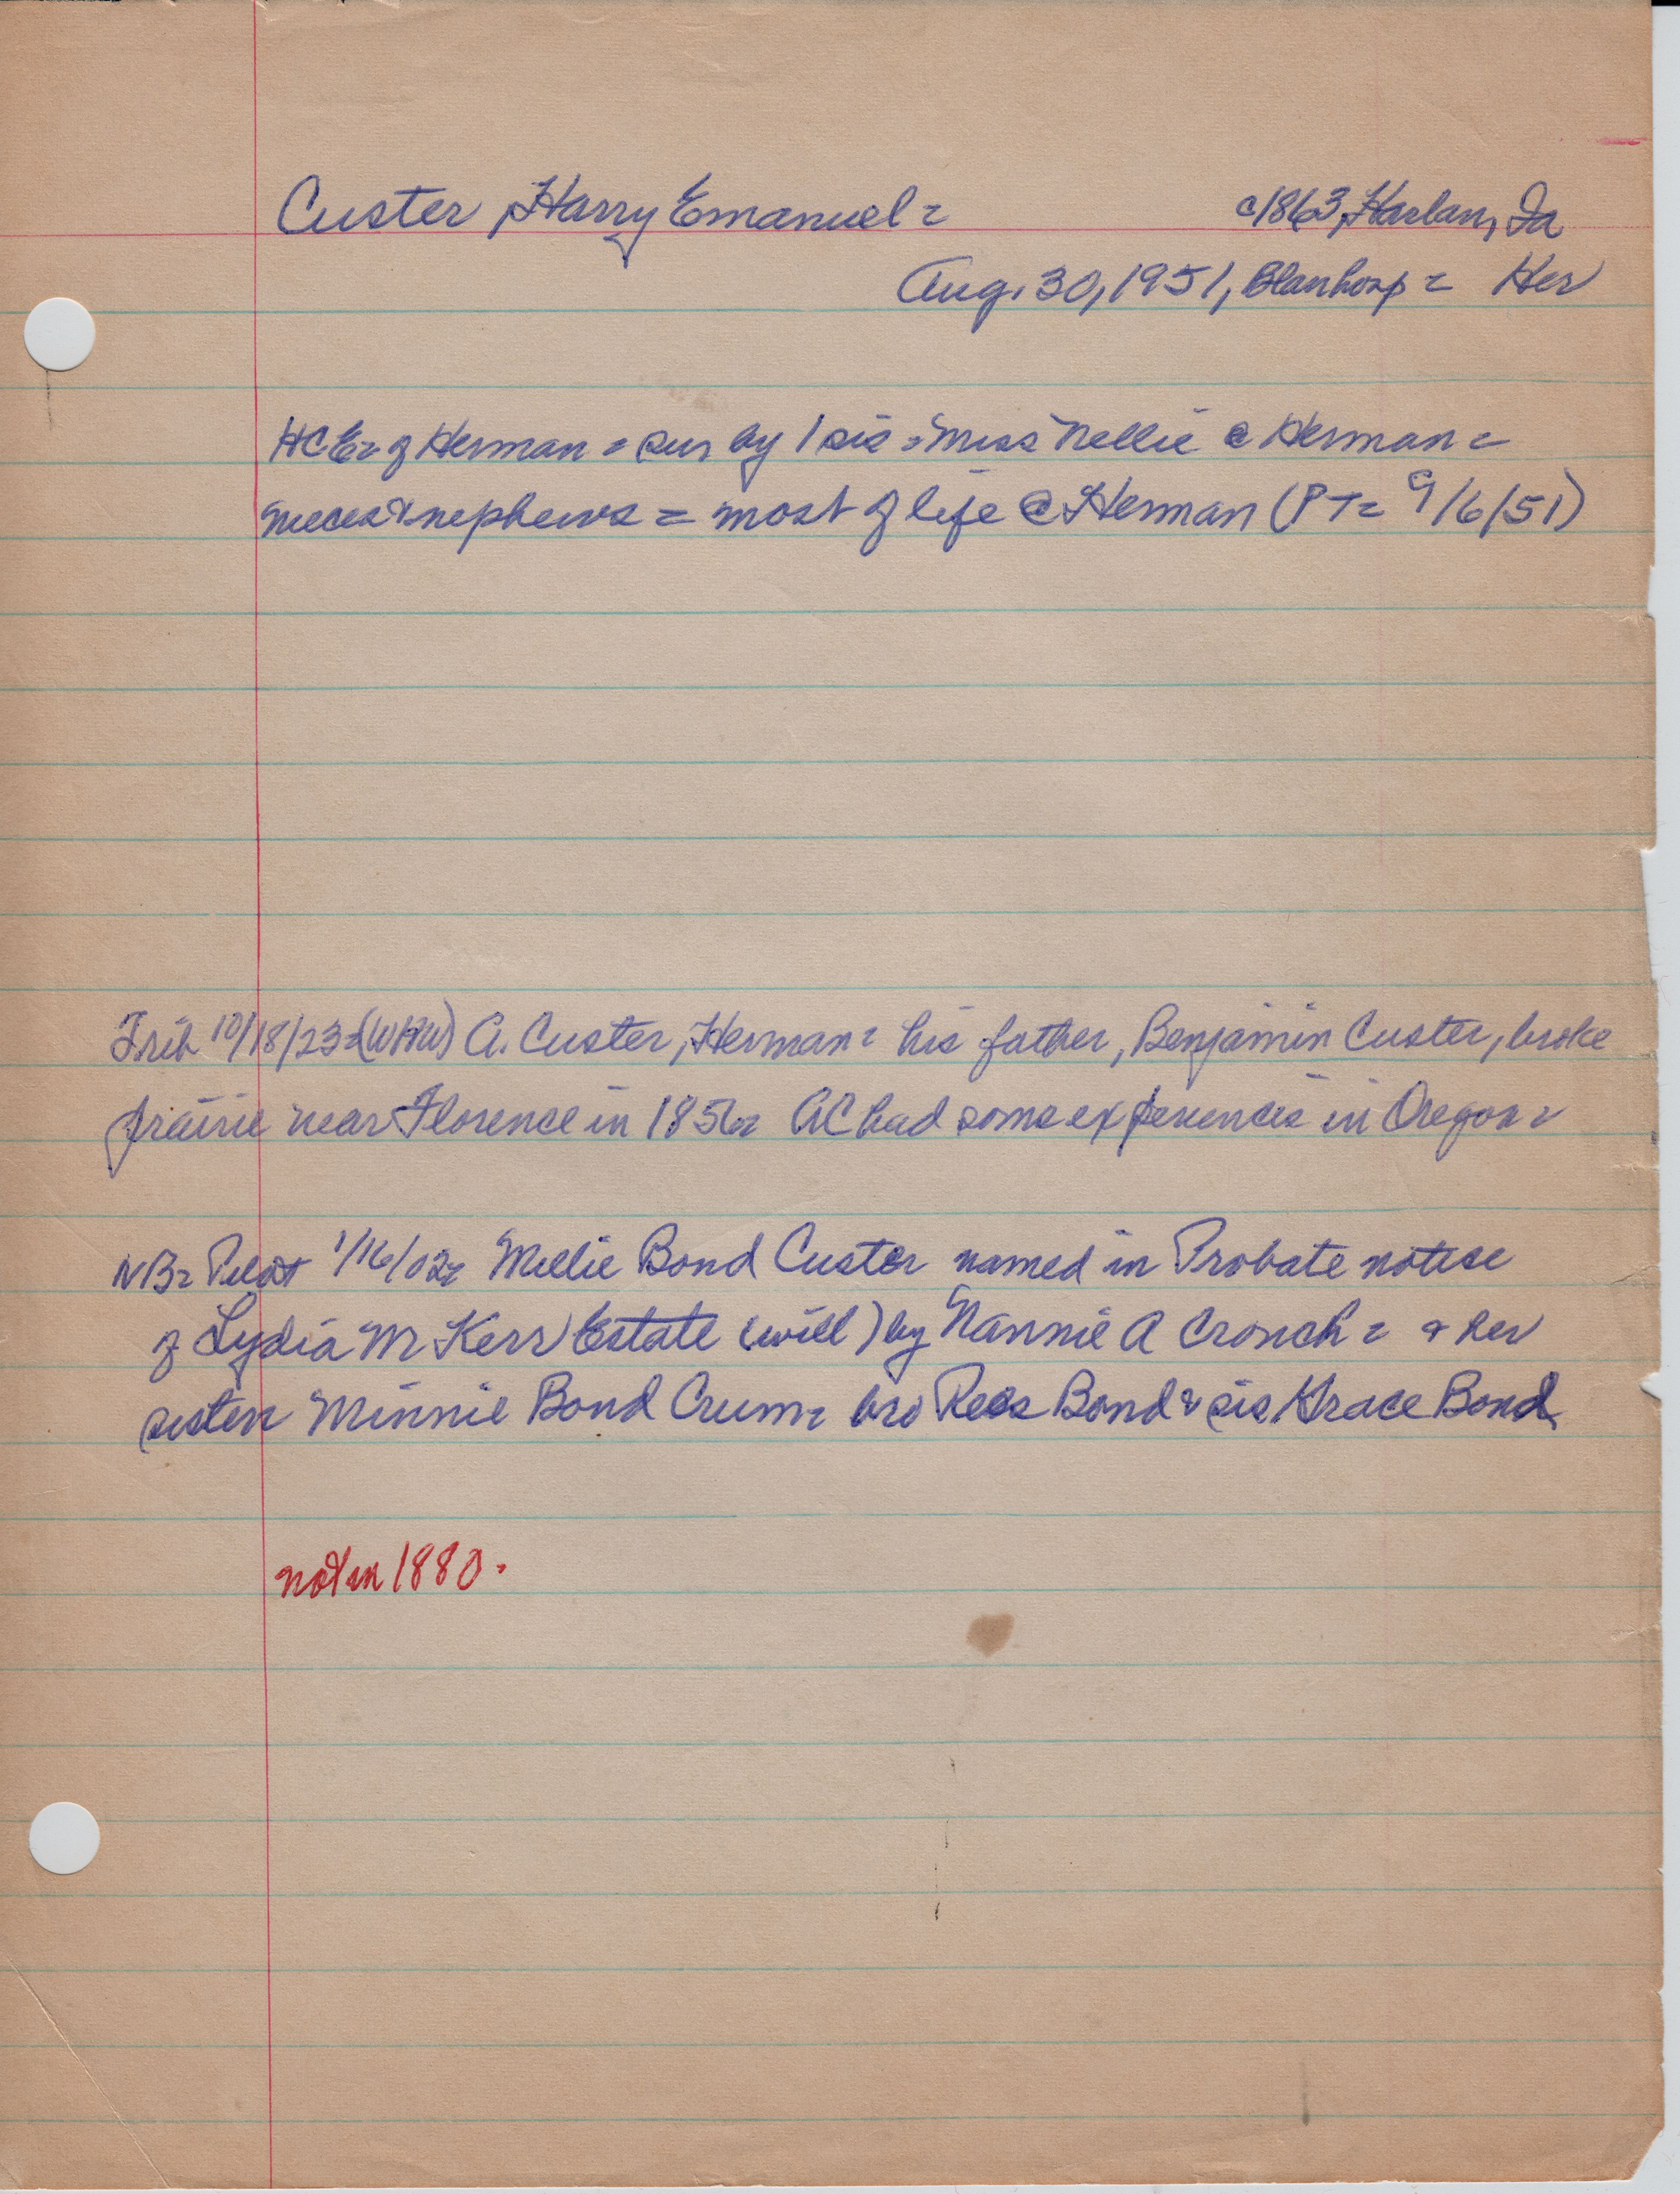 Custer, Harry Emanuel = c1863, Harlan, Ia
Aug. 30, 1951, Blair hosp = Her
HCE = of Herman = sur by 1 sis = Miss Nellie @ Herman =
nieces & nephews = most of life @ Herman (PT = 9/6/51)
Trib 10/18/23 = A. Custer, Herman = his father, Benjamin Custer, broke
prairie near Florence in 1856 = AC had some experiences in Oregon =
NB = Pilot 1/16/02 = Millie Bond Custer named in Probate notice
of Lydia M Kerr Estate (will) by Nannie A Crouch = & her
sisters Minnie Bond Crum = bro Rees Bond & sis Grace Bond
not in 1880.